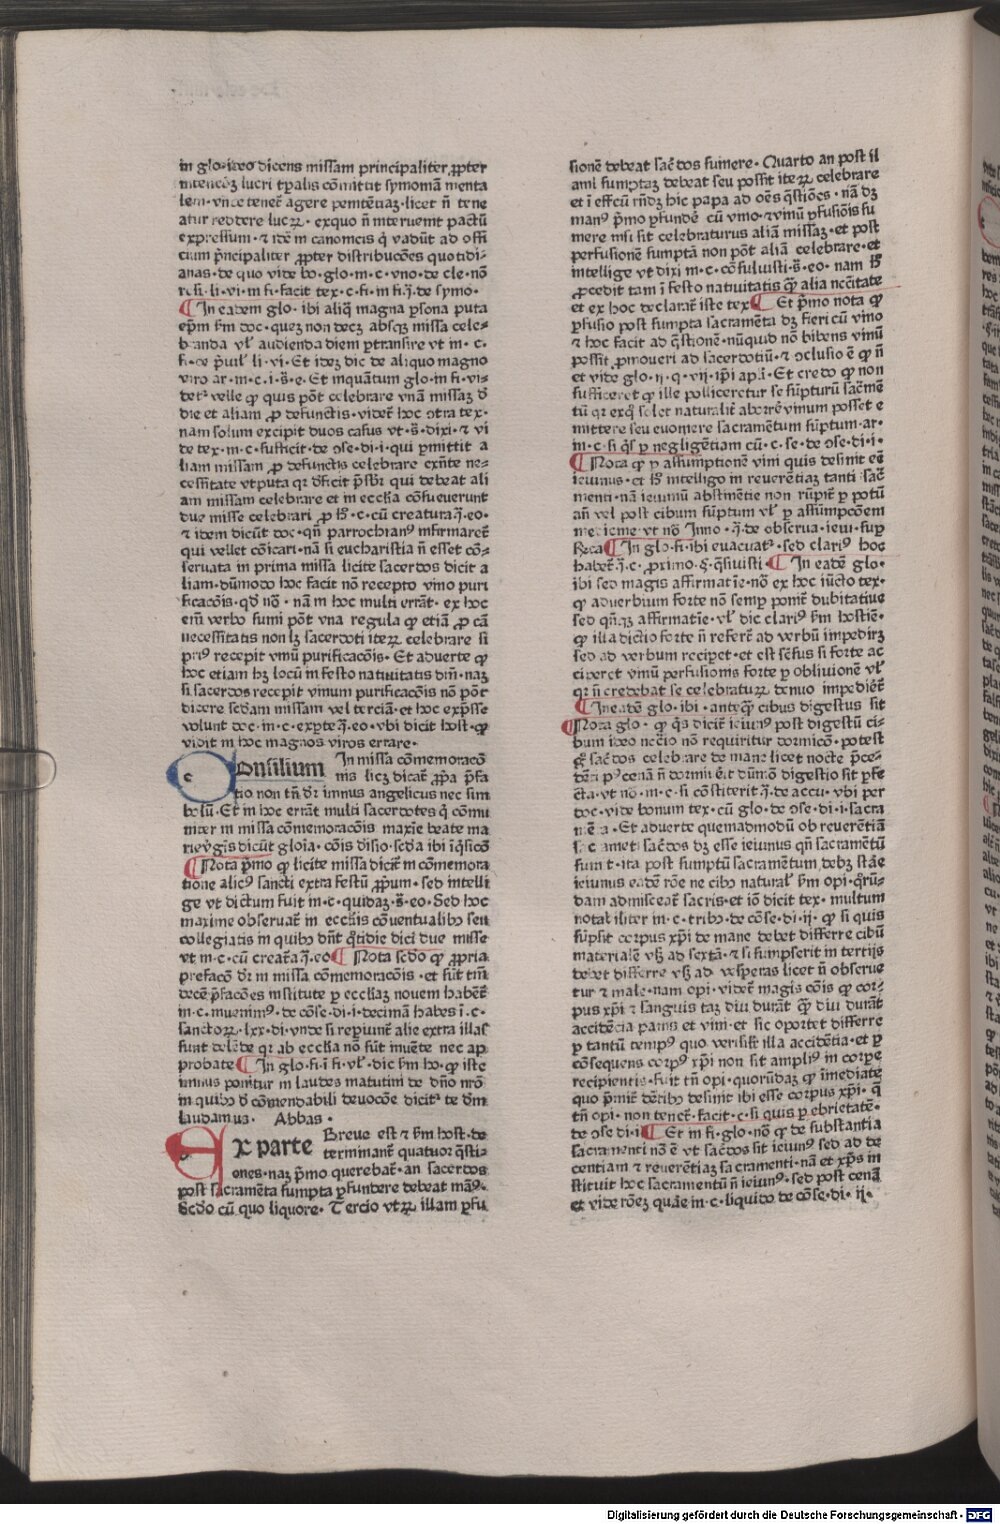 in glo. ideo dicens missam principaliter ꝓpter
intencōꝫ lucri tꝑalis cōmittit symoniā menta
lem. vnde tenet᷑ agere penitētiaꝫ. licet n̄ tene
atur reddere lucꝝ. exquo n̄ interuenit pactū
expressum. ⁊ idē in canonicis q̄ vadūt ad offi
cium p̄ncipaliter ꝓpter distribucōes quotidi-
anas. de quo vide bo. glo. in. c. vno. de cle. nō
resi. li. vi. in fi. facit tex. c. fi. in fi. j̄. de symo.
¶ In eadem glo. ibi aliq̄ magna ꝑsona puta
ep̄m ẜm doc. queꝫ non decꝫ absqꝫ missa cele-
branda vl᷑ audienda diem ꝑtransire vt in. c.
fi. de p̄uil᷑. li. vi. Et ideꝫ dic de aliquo magno
viro ar. in. c. i. s̄. e. Et inquātum glo. in fi. vi-
det᷑ velle ꝙ quis pōt celebrare vnā missaꝫ d̄
die et aliam ꝓ defunctis. videt᷑ hoc ꝯtra tex.
nam solum excipit duos casus vt. s̄. dixi. ⁊ vi
de tex. in. c. sufficit. de ꝯse. di. i. qui ꝑmittit a
liam missam ꝓ defunctis celebrare exn̄te ne-
cessitate vtputa qꝛ d̄ficit p̄sb̄r qui debeat ali
am missam celebrare et in ecclīa cōsueuerunt
due misse celebrari ꝓ h̄. c. cū creatura. j̄. eo.
⁊ idem dicūt doc. qn̄ parrochianꝰ infirmaret᷑
qui vellet cōicari. nā si eucharistia n̄ esset cō-
seruata in prima missa licite sacerdos dicit a
liam. dūmodo hoc facit nō recepto vino puri
ficacōis. qd̄ nō. nā in hoc multi errāt. ex hoc
em̄ verbo sumi pōt vna regula ꝙ etiā ꝓ cā
necessitatis non lꝫ sacerdoti iteꝝ celebrare si
priꝰ recepit vinū purificacōis. Et aduerte ꝙ
hoc etiam hꝫ locū in festo natiuitatis dn̄i. naꝫ
si sacerdos recepit vinum purificacōis nō pōt
dicere secdam missam vel terciā. et hoc exp̄sse
volunt doc. in. c. exꝑte. j̄. eo. vbi dicit host. ꝙ
vidit in hoc magnos viros errare.
Consilium In missa cōmemoracō
nis licꝫ dicat᷑ ꝓpa p̄fa
tio non tn̄ dr̄ imnus angelicus nec sim
bolū. Et in hoc errāt multi sacerdotes q̄ cōmu
niter in missa cōmemoracōis maxīe beate ma
rie v̄gis dicūt gloīa. cōis disio. scd̄a ibi īq̄sicō
¶ Nota p̄mo ꝙ licite missa dicit᷑ in cōmemora
tione alicꝰ sancti extra festū ꝓpium. sed intelli
ge vt dictum fuit in. c. quidaꝫ. s̄. eo. Sed hoc
maxime obseruat᷑ in ecclīis cōuentualibꝰ seu
collegiatis in quibꝰ dn̄t q̄tidie dici due misse
vt in. c. cū creat̄a. j̄. eo ¶ Nota scd̄o ꝙ ꝓpria
prefacō dr̄ in missa cōmemoracōis. et sūt tm̄
decē p̄facōes institute ꝑ eccliaꝫ nouem habēt᷑
in. c. inuenimꝰ. de cōse. di. i. decimā habes i. c.
sanctoꝝ. lxx. di. vnde si repiunt᷑ alie extra illas
sunt delēde qꝛ ab ecclīa nō sūt inuēte nec ap
probate ¶ In glo. fi. ī fi. vl᷑. dic ẜm ho. ꝙ iste
imnus ponitur in laudes matutini de dn̄o nrō
in quibꝰ d̄ cōmendabili deuocōe dicit᷑ te dm̄
laudamus. Abbas.
Ex parte Breue est ⁊ ẜm host. de
terminant᷑ quatuor q̄sti-
ones. naꝫ p̄mo querebat᷑. an sacerdos
post sacramēta sumpta ꝑfundere debeat manꝰ.
Scd̄o cū quo liquore. Tercio vtꝝ illam ꝑfu
sionē debeat sac̄dos sumere. Quarto an post il
lam sumptaꝫ debeat seu possit iteꝝ celebrare
et ī effcū rn̄dꝫ hic papa ad oēs q̄stiōes. nā dꝫ
manꝰ p̄mo ꝑfundē cū vino. ⁊ vinū ꝑfusiōis su
mere nisi sit celebraturus aliā missaꝫ. et post
perfusionē sumptā non pōt aliā celebrare. et
intellige vt dixi in. c. cōsuluisti. s̄. eo. nam h̄
ꝓcedit tam ī festo natiuitatis qꝫ alia nc̄citate
et ex hoc declarat᷑ iste tex ¶ Et p̄mo nota ꝙ
ꝑfusio post sumpta sacramēta dꝫ fieri cū vino
⁊ hoc facit ad q̄stionē. nūquid nō bibens vinū
possit ꝓmoueri ad sacerdotiū. ⁊ ꝯclusio ē ꝙ n̄
et vide glo. ij. q. vij. ip̄i apl̄i. Et credo ꝙ non
sufficeret ꝙ ille polliceretur se sūpturū sacᷓmē
tū qꝛ exqͦ solet naturalit᷑ aborrē vinum posset e
mittere seu euomere sacramentum sūptum. ar.
in. c. si q̄s ꝑ negligētiam cū. c. se. de ꝯse. di. i.
¶ Nota ꝙ ꝑ assumptionē vini quis desinit eē
ieiunus. et h̄ intelligo in reuerētiaꝫ tanti sacᷓ
menti. nā ieiuniū abstinētie non rūpit᷑ ꝑ potū
an̄ vel post cibum sūptum vl᷑ ꝑ assūmpcōem
medicine vt nō. Inno. j̄. de obserua. ieiu. suꝑ
Rꝛca ¶ In glo. fi. ibi euacuat᷑. sed clariꝰ hoc
habet᷑ j̄. c. proximo. §. q̄siuisti. ¶ In eadē glo.
ibi sed magis affirmatīe. nō ex hoc iūcto tex.
ꝙ aduerbium forte nō semꝑ ponit᷑ dubitatiue
sed qn̄qꝫ affirmatīe. vl᷑ dic clariꝰ ẜm hostiē.
ꝙ illa dictio forte n̄ refert᷑ ad verbū impedirꝫ
sed ad verbum reciꝑet. et est sēsus si forte ac
ciꝑet vinū perfusionis forte ꝑ obliuionē vl᷑
qꝛ n̄ credebat se celebratuꝝ denuo impediēt᷑
¶ In eadē glo. ibi. anteqꝫ cibus digestus sit
Nota glo. ꝙ q̄s dicit᷑ ieiunꝰ post digestū ci-
bum ideo necīo nō requiritur dormicō. potest
g° sac̄dos celebrare de mane licet nocte p̄ce-
den̄ti p̄ cenā n̄ dormie᷑it dūmō digestio sit ꝑfe
cta. vt nō. in. c. si cōstiterit. j̄. de accu. vbi per
doc. vide bonum tex. cū glo. de ꝯse. di. i. sacra
mēta. Et aduerte quemadmodū ob reuerētiā
sacᷓmēti sac̄dos dꝫ esse ieiunus qn̄ sacramētū
sumit. ita post sumptū sacramētum debꝫ stāe
ieiunus eadē rōe ne cibꝰ natural᷑ ẜm opi. q̊rū-
dam admisceat᷑ sacris. et iō dicit tex. multum
notabiliter in. c. tribꝰ. de cōse. di. ij. ꝙ si quis
sūpsit corpus xp̄i de mane debet differre cibū
materialē vsqꝫ ad sextā. ⁊ si sumpserit in tertijs
debet differre vsqꝫ ad vesperas licet n̄ obserue
tur ⁊ male. nam opi. videt᷑ magis cōis ꝙ cor-
pus xp̄i ⁊ sanguis taꝫ diu durāt qꝫ diu durāt
accidētia panis et vini. et sic oportet differre
ꝑ tantū tempꝰ quo verisiꝉr illa accidētia. et ꝑ
cōsequens corpꝰ xp̄i non sit ampliꝰ in corꝑe
recipientis. fuit tn̄ opi. quorūdaꝫ ꝙ īmediate
quo p̄mit᷑ dētibꝰ desinit ibi esse corpus xp̄i. q̄
tn̄ opi. non tenet᷑. facit. c. si quis ꝑ ebrietatē.
de ꝯse di. ij. ¶ Et in fi. glo. nō ꝙ de substantia
sacramenti nō ē vt sac̄dos sit ieiunꝰ sed ad de
centiam ⁊ reuerētiaꝫ sacramenti. nā et xp̄s in
stituit hoc sacramentū n̄ ieiunꝰ. sed post cenā
et vide rōeꝫ quāe in. c. liquido de cōse. di. ij.
Digitalisierung gefördert durch die Deutsche Forschungsgemeinschaft - DFG